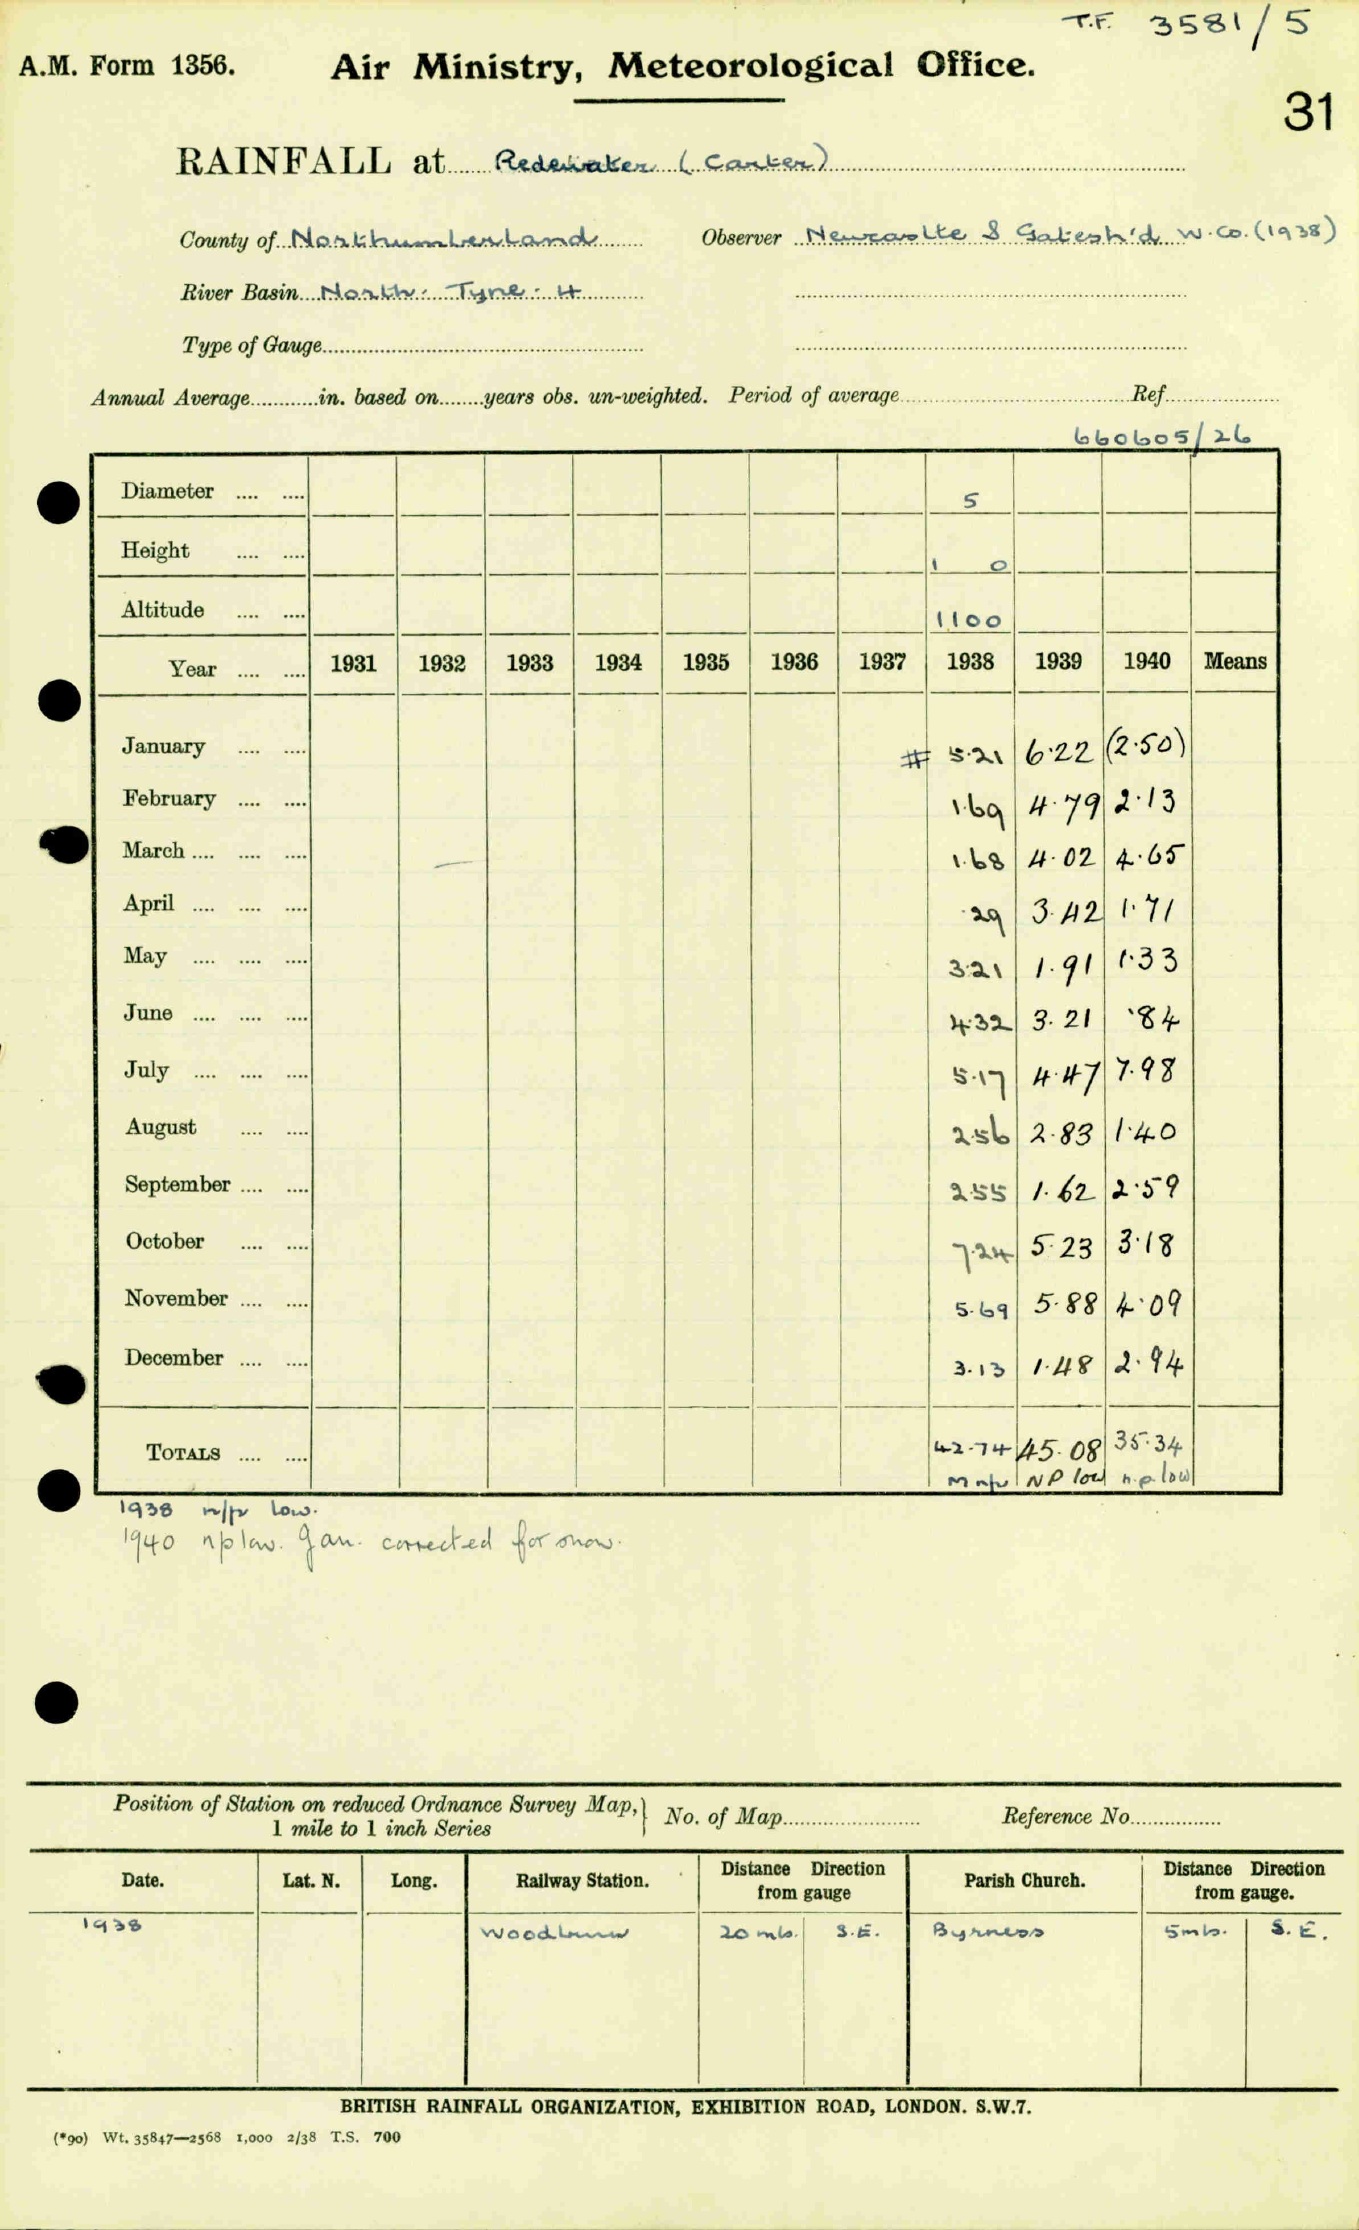 T.F. 3581/5
A.M. Form 1356. Air Ministry, Meteorological Office.
31
RAINFALL at Redewater (Carter)
County of Northumberland Observer Newcastle & Gatesh'd W.Co. (1938)
River Basin North Tyne. 4
Type of Gauge
Annual Average in. based on years obs. un-weighted. Period of average Ref.
660605/26
Diameter 5
Height 1 0
Altitude 1100
Year 1931 1932 1933 1934 1935 1936 1937 1938 1939 1940 Means
January # 5.21 6.22 (2.50)
February 1.69 4.79 2.13
March 1.68 4.02 4.65
April .29 3.42 1.71
May 3.21 1.91 1.33
June 4.32 3.21 .84
July 5.17 4.47 7.98
August 2.56 2.83 1.40
September 2.55 1.62 2.59
October 7.24 5.23 3.18
November 5.69 5.88 4.09
December 3.13 1.48 2.94
TOTALS 42.74 45.08 35.34
M n/p NP low n.p. low
1938 n/p low.
1940 np low. Jan. corrected for snow.
Position of Station on reduced Ordnance Survey Map, } No. of Map Reference No.
1 mile to 1 inch Series
Date. Lat. N. Long. Railway Station. Distance Direction from gauge Parish Church. Distance Direction from gauge.
1938 Woodburn 20 mls. S.E. Byrness 5 mls. S.E.
BRITISH RAINFALL ORGANIZATION, EXHIBITION ROAD, LONDON. S.W.7.
(*90) Wt. 35847—2568 1,000 2/38 T.S. 700